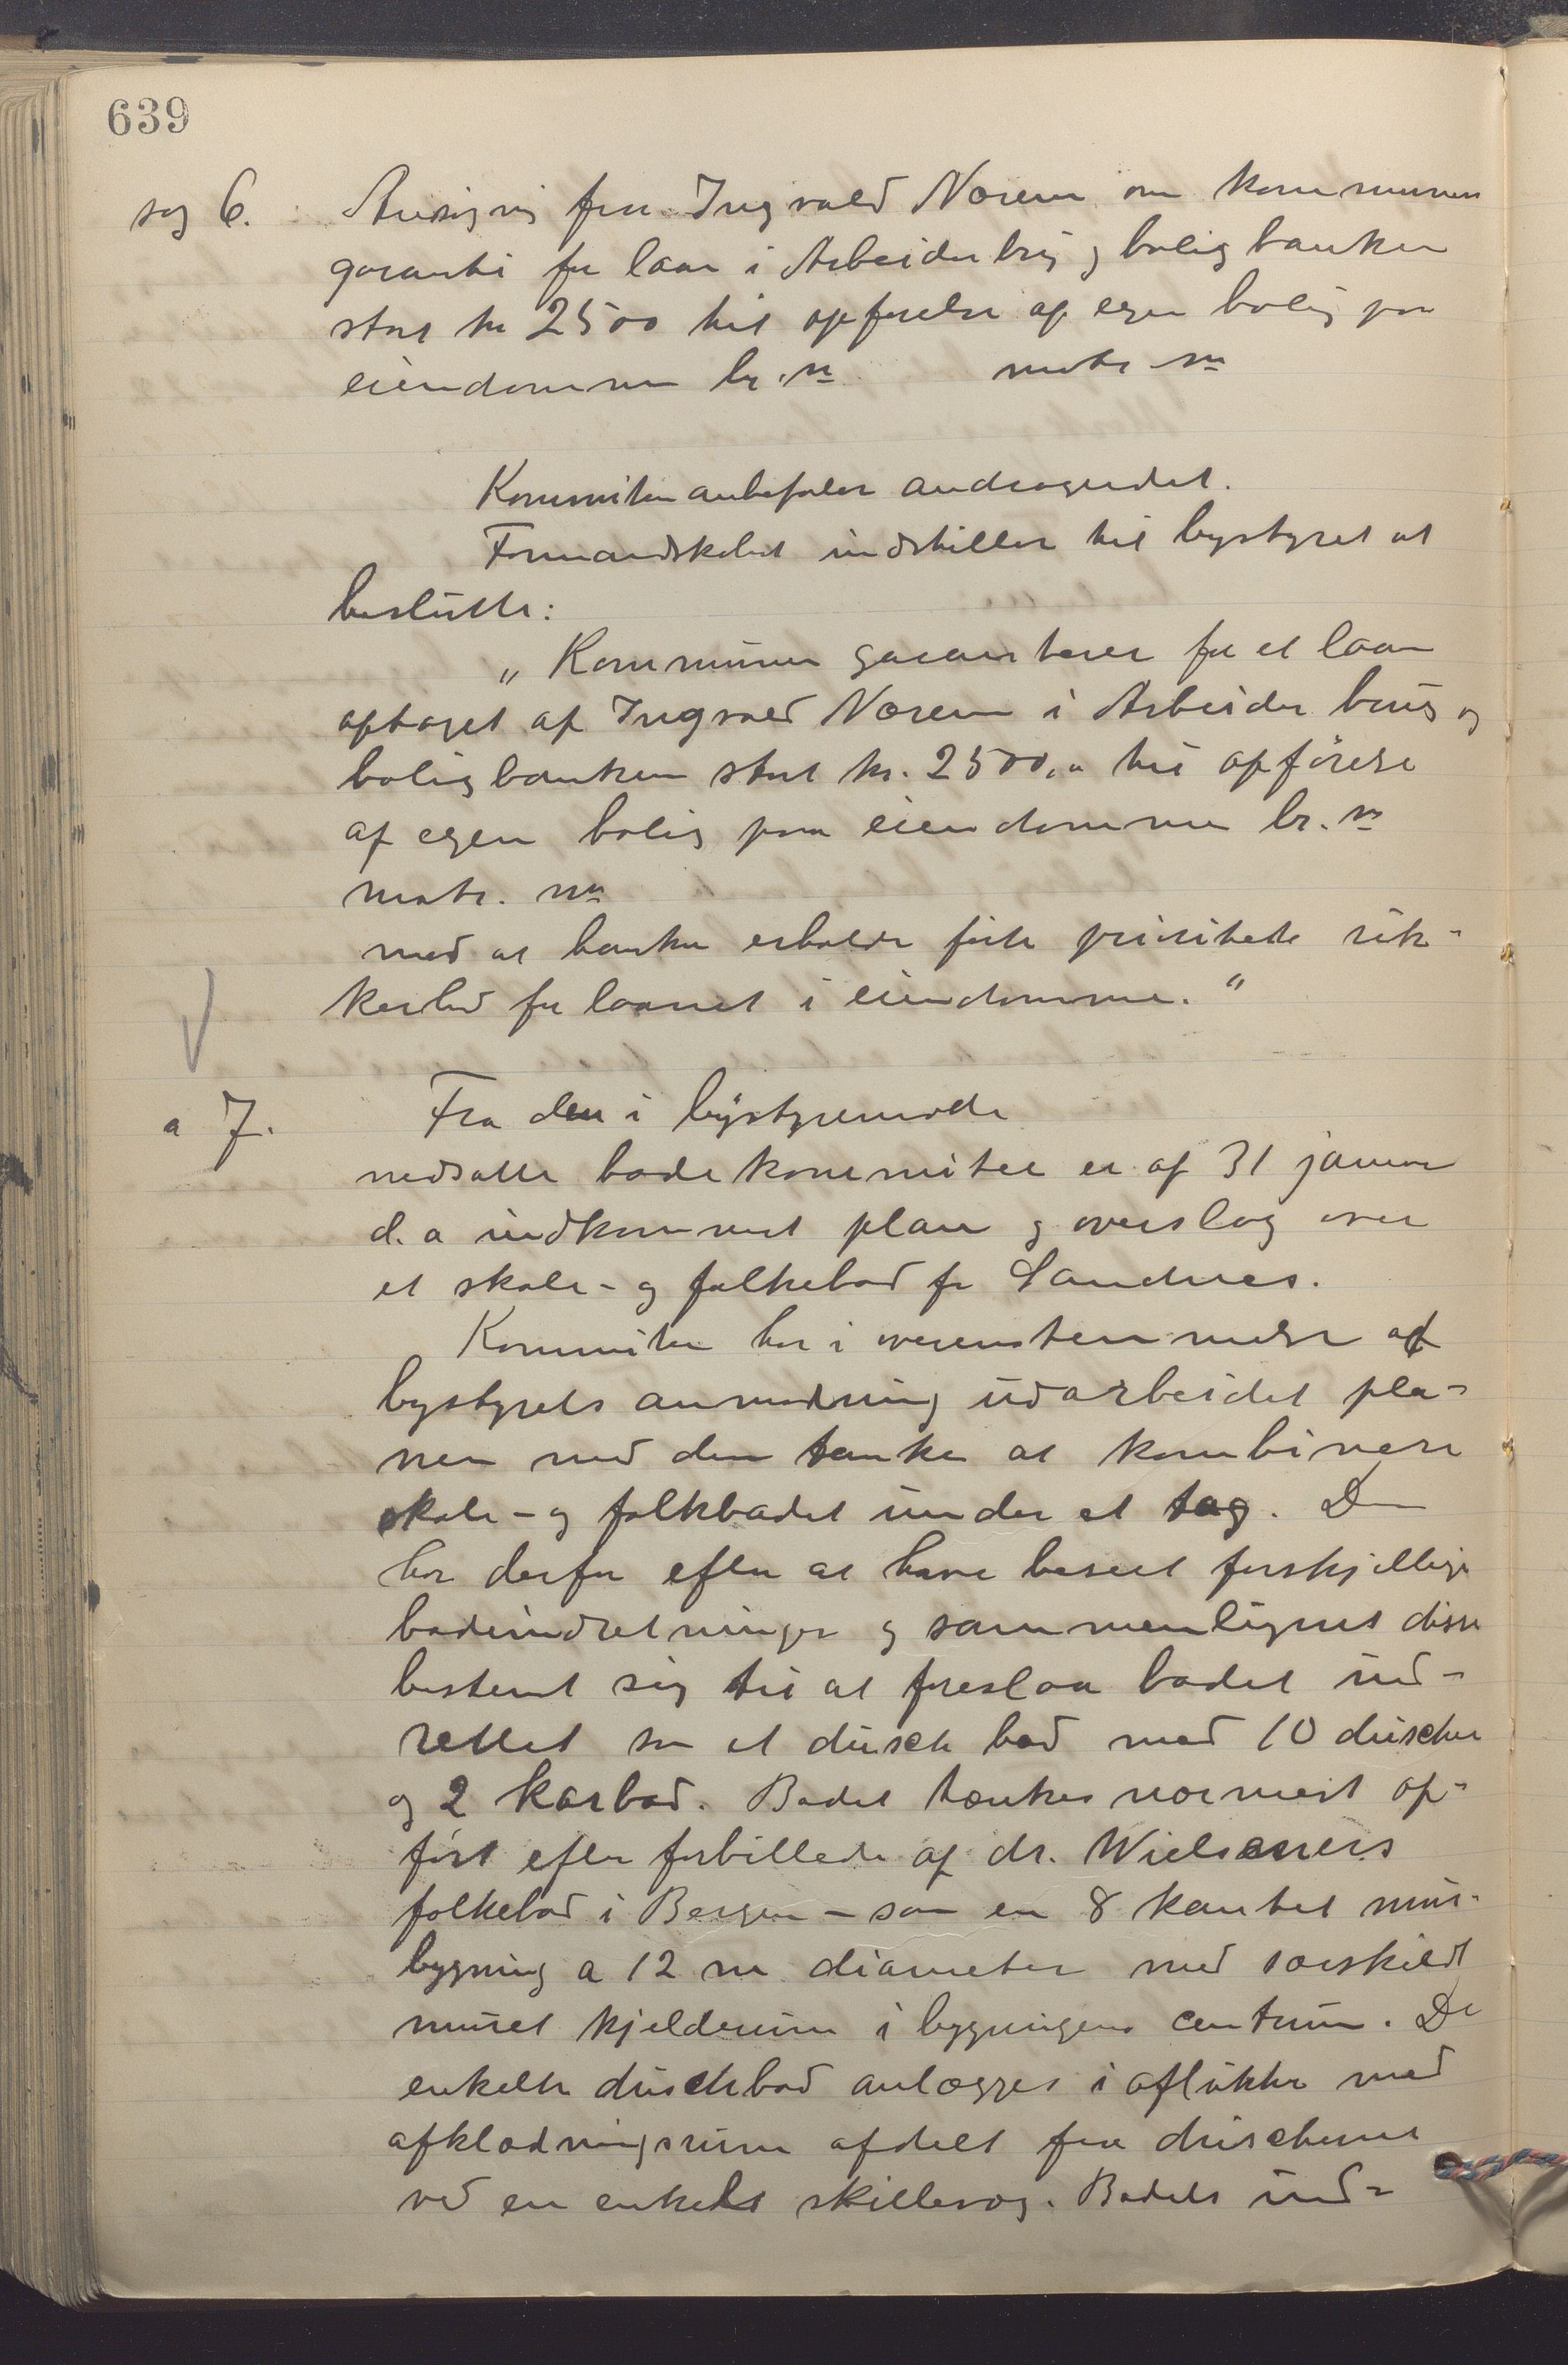 639
sag 6. Ansøgning fra Ingvald Norem om kommunens
garanti for laan i Arbeiderbrug og boligbanken
stort kr 2500 til opførelse af egen bolig paa
eiendommen br. no matr no
Kommiteen anbefaler andragendet.
Formandskabet indstiller til bystyret at
beslutte:
"Kommunen garanterer for et laan
optaget af Ingvald Norem i Arbeiderbrug og
boligbanken stort kr. 2500,- til opførelse
af egen bolig paa eiendommen br. no
matr. no
mod at banken erholder første prioritets sik-
kerhed for laanet i eiendommen."
a 7. Fra den i bystyremøde
nedsatte badekommitee er af 31 januar
d. a indkommet plan og overslag over
et skole- og folkebad for Sandnes.
Kommiteen har i overensstemmelse af
bystyrets anmodning udarbeidet pla-
nen med den tanke at kombinere
skole- og folkbadet under et tag. Den
har derfor efter at have beseet forskjellige
badeindretninger og sammenlignet disse
bestemt sig til at foreslaa badet ind-
rettet som et dusch bad med 10 duscher
og 2 karbad. Badet tænkes nærmest op-
ført efter forbillede af dr. Wieseners
folkebad i Bergen - som en 8 kantet mur-
bygning a 12 m diameter med særskildt
muret kjelderum i bygningens centrum. De
enkelte duschbad anlægges i aflukke med
afklædningsrum afdelt fra duscherne
ved en enkelt skillevæg. Badets ind-